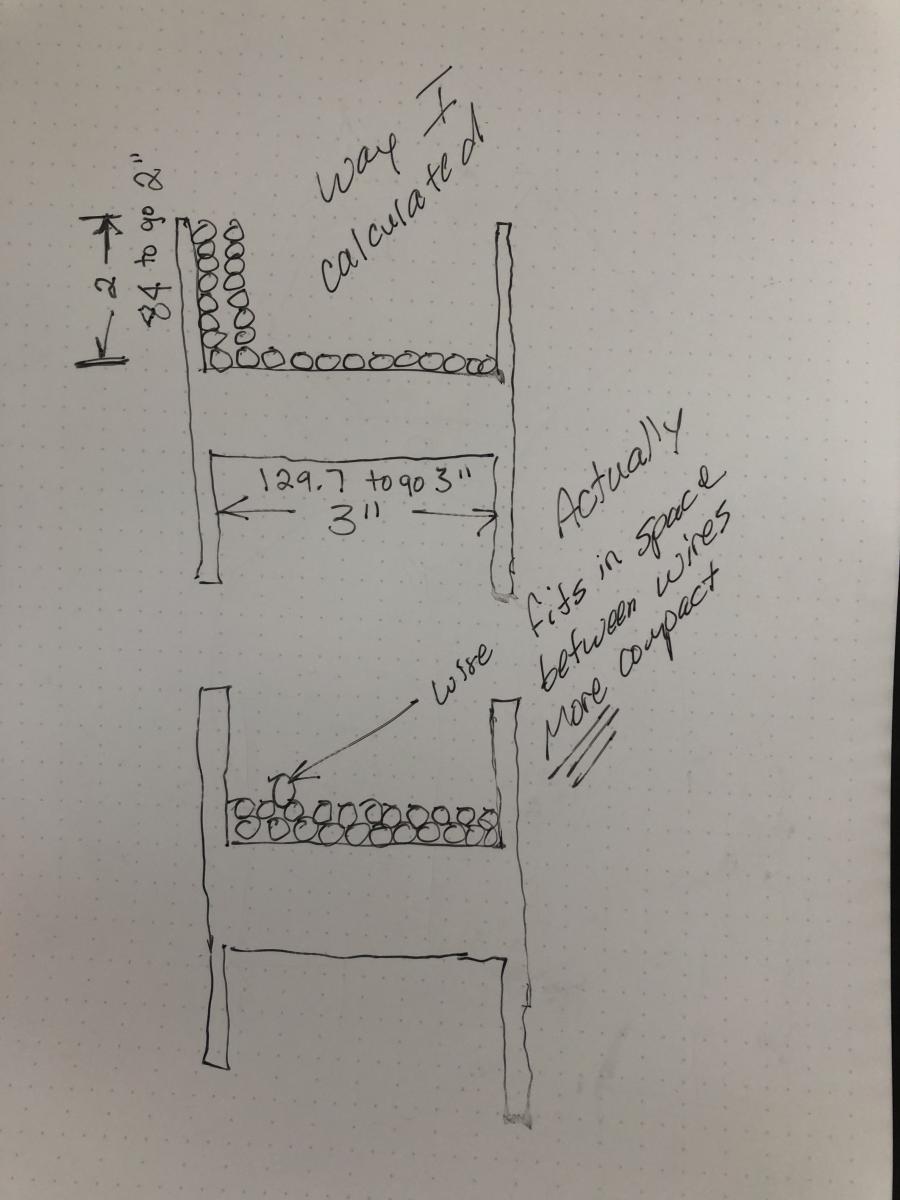 Way I
calculated
2
84 to go 2"
129.7 to go 3"
3"
Actually
wire fits in space
between wires
More compact